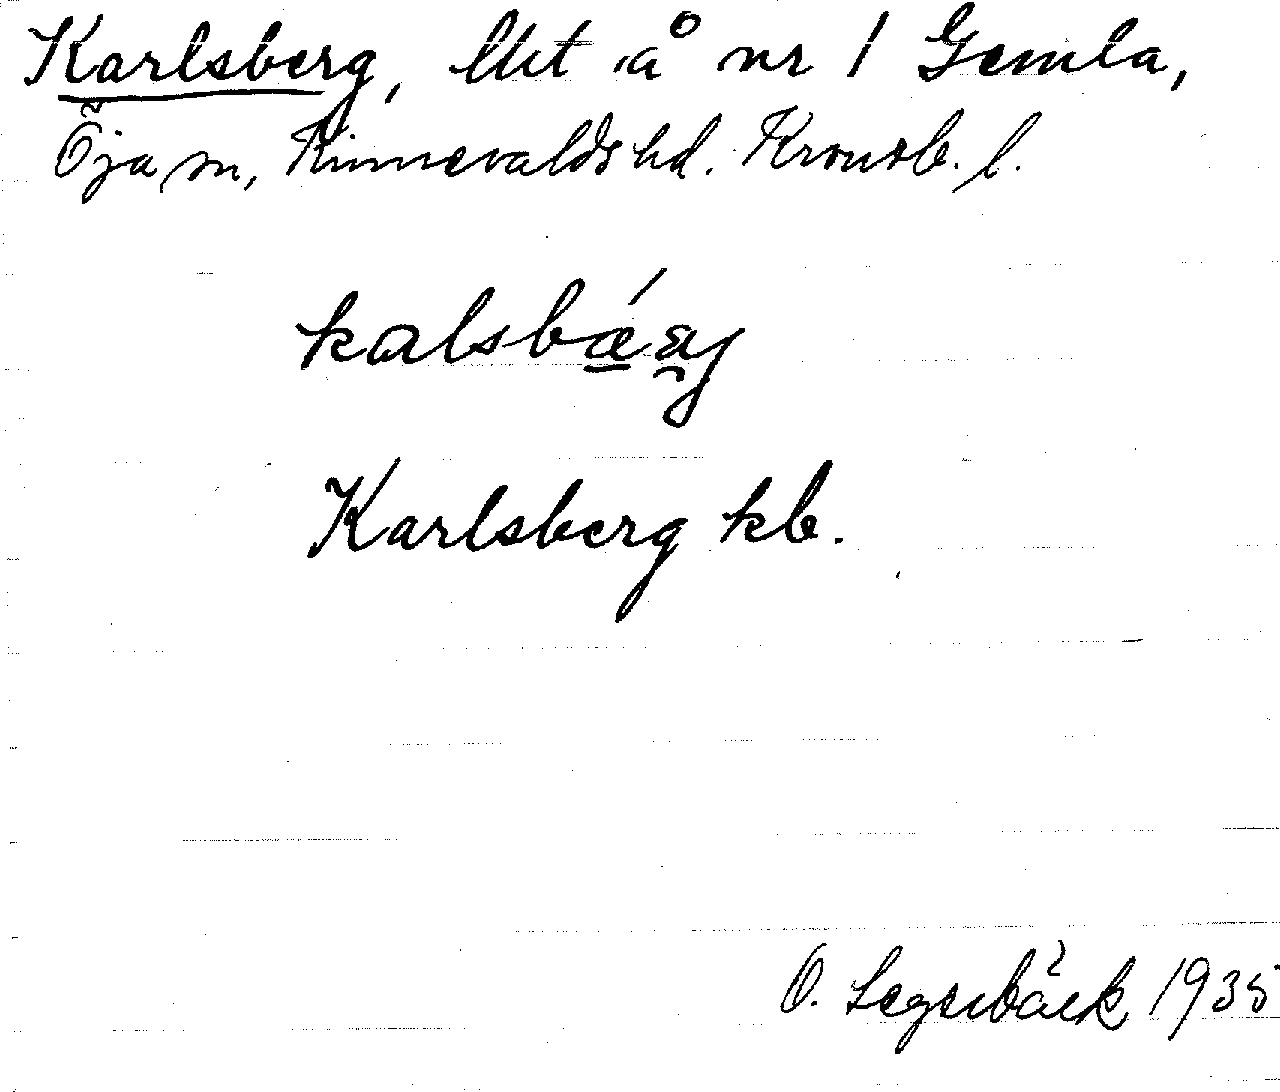 Karlsberg, lht å nr 1 Gemla,
Öja sn, Kinnevalds hd. Kronob. l.
kalsbǽ
Karlsberg kb.
O. Segerbäck 1935